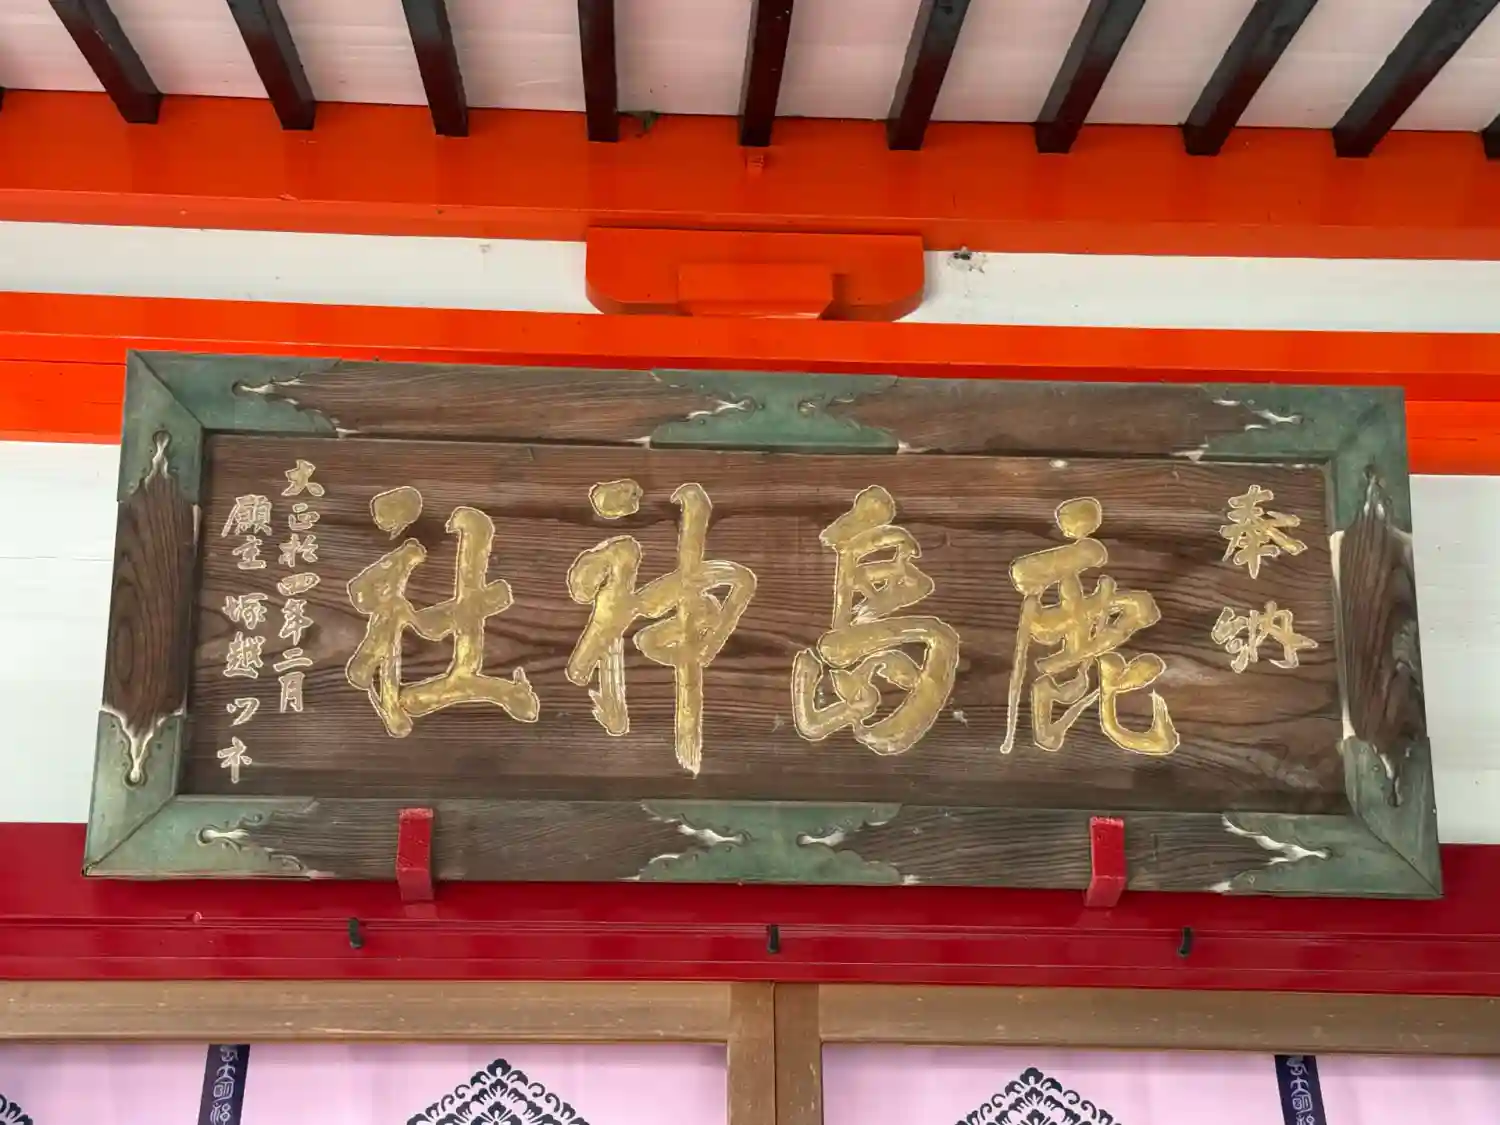 奉納
鹿島神社
大正拾四年二月
願主 塚越ツネ